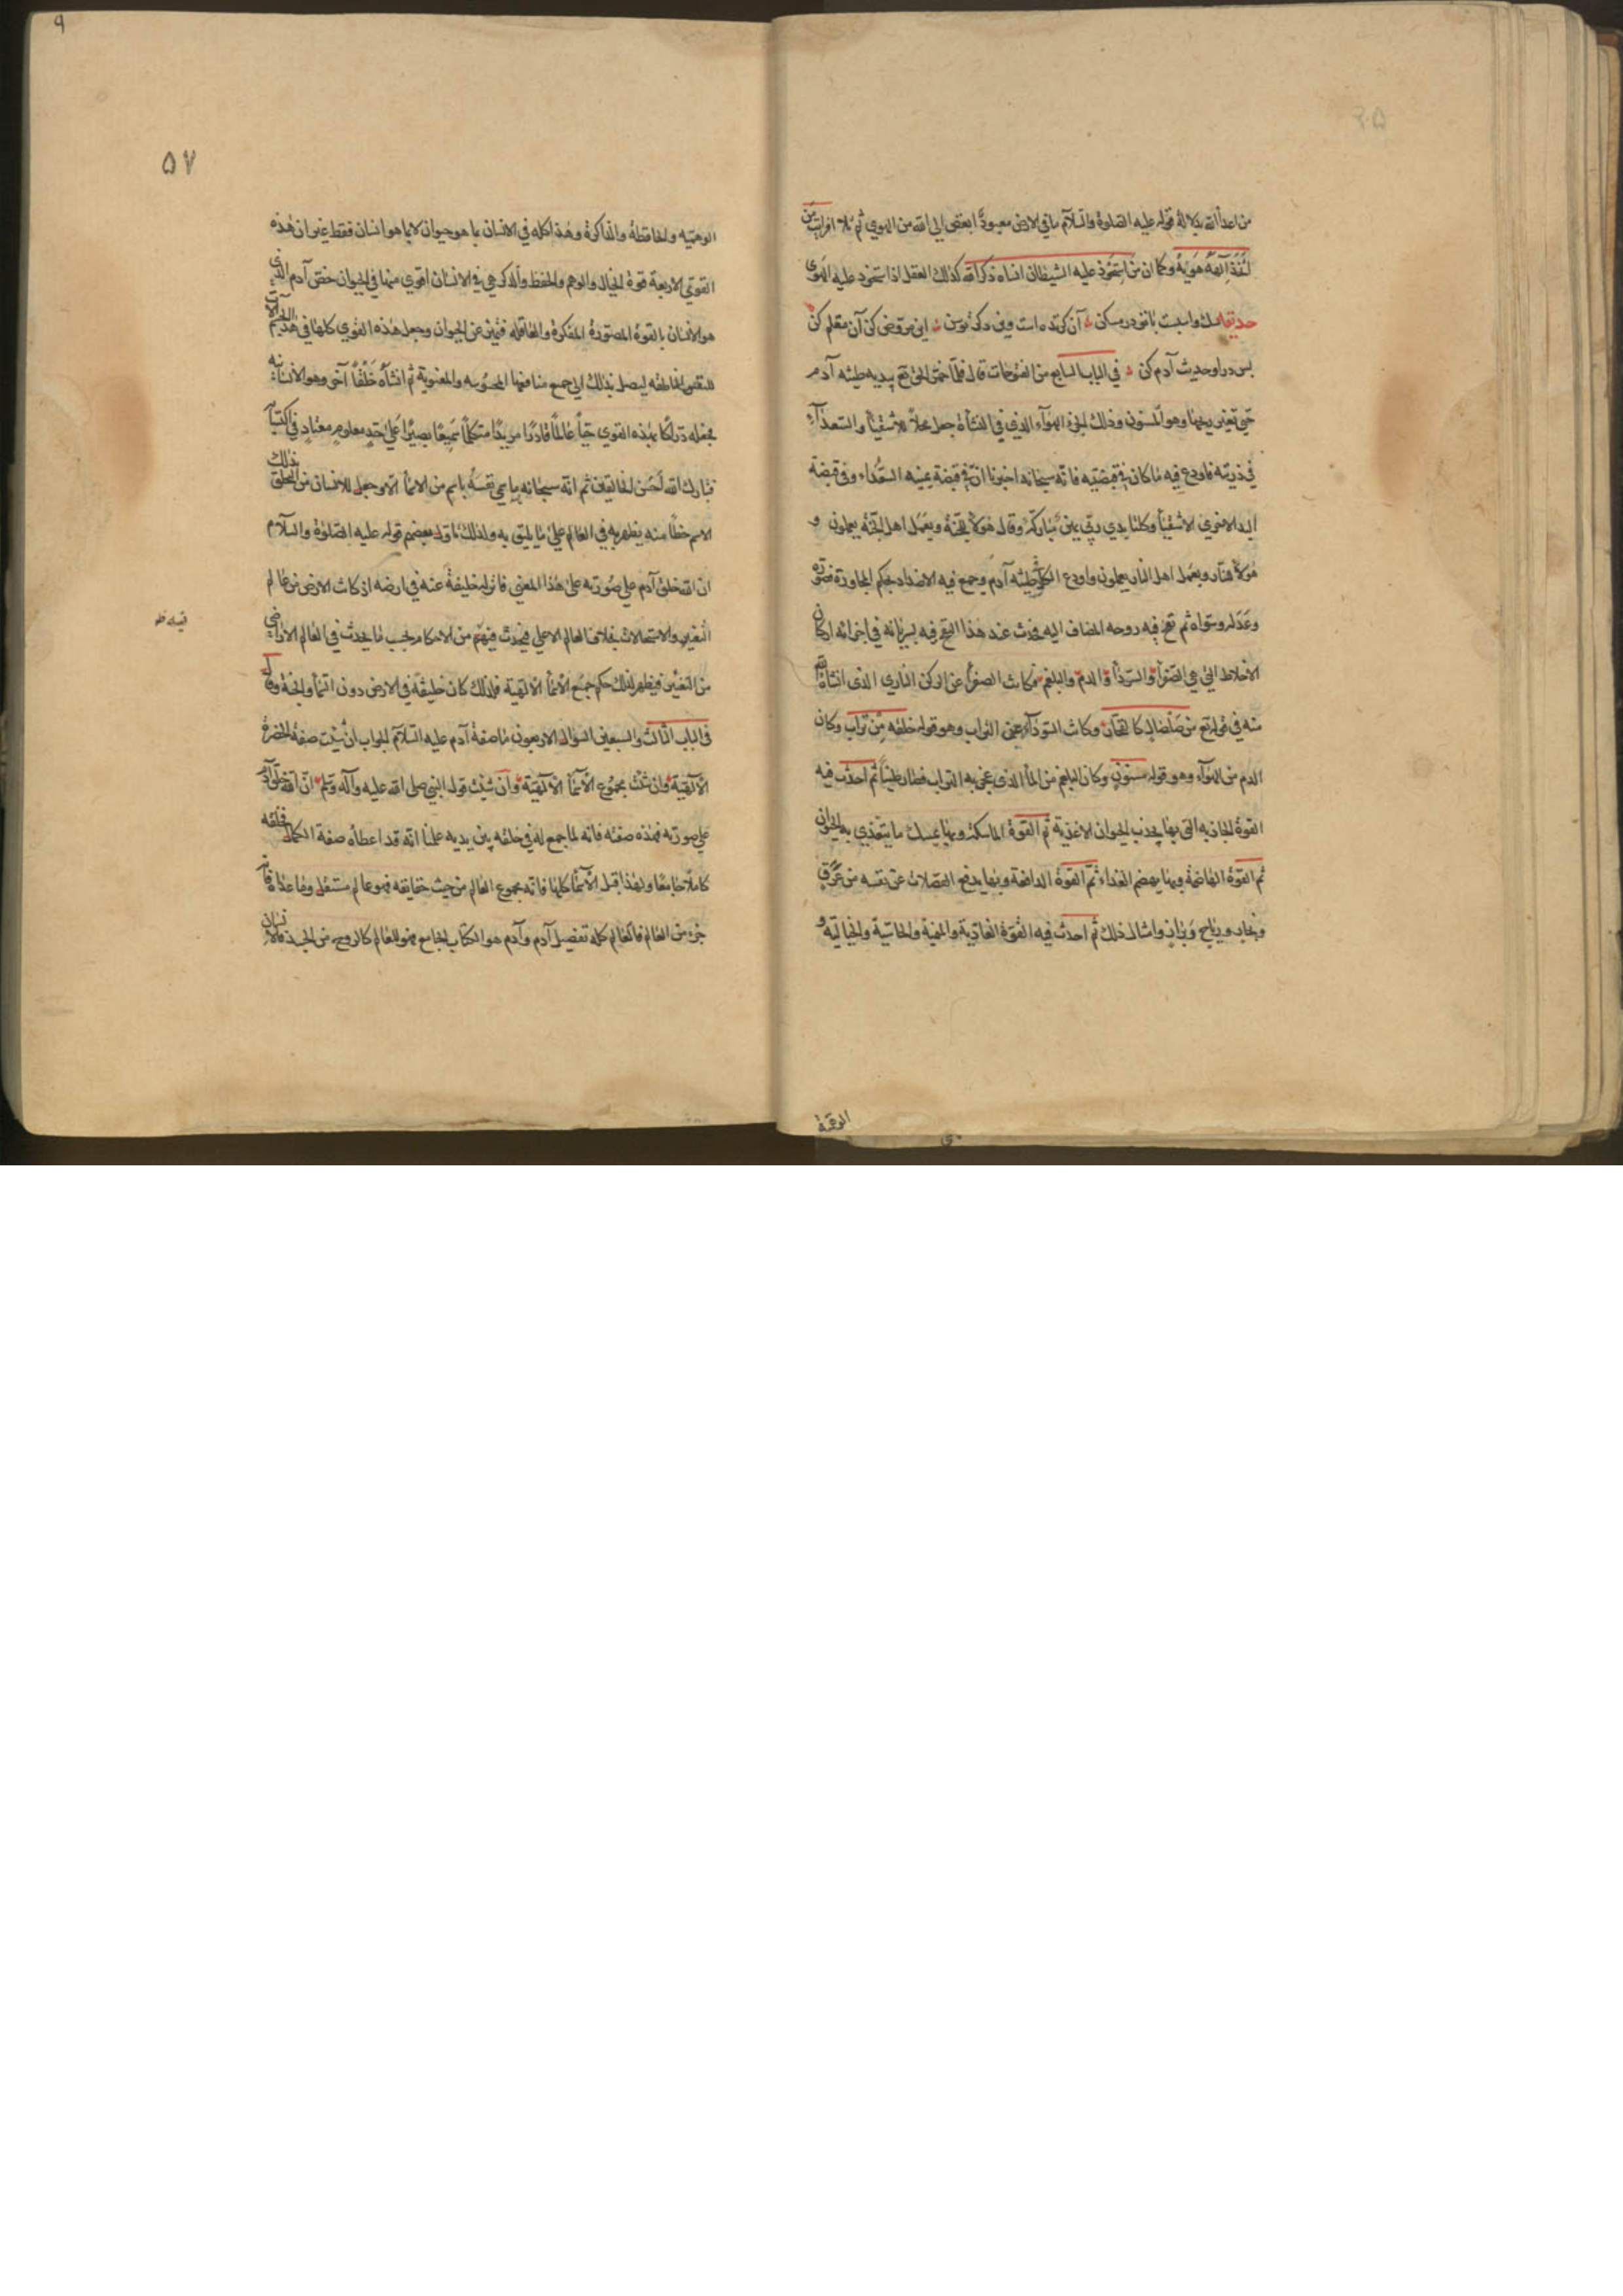 من اعداء الله بدلالة قوله عليه الصلوة والسلام ما في الارض معبود ابغض الى الله من الهوي ثم تلا افرايت من
اتخذ الهه هويه وكما ان من استحوذ عليه الشيطان انساه ذكر الله كذلك العقل اذا استحوذ عليه الهوى
حديقه ملك وابليت با تو در مسكن آن
پس در او حديث آدم كن في الباب السابع من الفتوحات قال فلما خمر الحق تع بيديه طينة آدم
حتى تغير ريحها وهو المسنون وذلك الجزء الهوآء الذي في النشأة جعل محلا للاشقيأ والسعدآء
في ذريته فاودع فيه ما كان في قبضتيه فانه سبحانه اخبرنا ان في قبضة يمينه السعداء وفي قبضة
اليد الاخرى الاشقيأ وكلتا يدي ربي يمين مباركة وقال هولآ للجنة وبعمل اهل الجنة يعملون و
هولآ للنار وبعمل اهل النار يعملون واودع الكل طينة آدم وجمع فيه الاضداد بحكم المجاورة
وعدله وسواه ثم نفخ فيه روحه المضاف اليه فحدث عند هذا النفخ فيه بسريانه في اجزائه اركان
الاخلاط التي هي الصفرأ والسودأ والدم والبلغم فكانت الصفرأ عن الركن الناري الذى انشأه الله
منه في قوله تع من صلصال كالفخار وكانت السودآء عن التراب وهو قوله خلقه من تراب وكان
الدم من الهوآء وهو قوله مسنون وكان البلغم من المأ الذى عجن به التراب فصار طينا ثم احدث فيه
القوة الجاذبه التى بها يجذب الحيوان الاغذية ثم القوة الماسكة وبها يمسك ما يتغذي به الحيوان
ثم القوة الهاضمة وبها يهضم الغذاء ثم القوة الدافعة وبها يدفع الفضلات عن نفسه من عرق
وبخار ورياح وبراز وامثال ذلك ثم احدث فيه القوة الغاذية والمنمية والحاسية والخيالية و
الوهمية
٥٧
الوهميه والحافظة والذاكرة وهذا كله في الانسان بما هو حيوان لا بما هو انسان فقط غير ان هذه
القوي الاربعة قوة الخيال والوهم والحفظ والذكر هي في الانسان اقوي منها في الحيوان خص آدم الذى
هو الانسان بالقوة المصورة المفكرة والعاقله فتميز عن الحيوان وجعل هذه القوي كلها في هذا الجسم آلات
للنفس الناطقه ليصل بذلك الى جميع منافعها المحسوسه والمعنوية ثم انشأه خلقا آخر وهو الانسانيه
فجعله دراكا بهذه القوي حيا عالما قادرا مريدا متكلما سميعا بصيرا على حد معلوم معتاد في اكتسابه
فتبارك الله احسن الخالقين ثم انه سبحانه ما سمى نفسه باسم من الاسمأ الا وجعل للانسان من التخلق بذلك
الاسم حظا منه يظهر به في العالم على ما يليق به ولذلك تاول بعضهم قوله عليه الصلوة والسلام
ان الله خلق آدم على صورته على هذا المعنى فانزله خليفة عنه في ارضه اذ كانت الارض من عالم
التغير والاستحالات بخلاف العالم الاعلى فيحدث فيهم من الاحكام بحسب ما يحدث في العالم الارضي
من التغيير فيظهر لذلك حكم جميع الاسمأ الالهية فلذلك كان خليفة في الارض دون السمأ والجنة وقال
فى الباب الثالث والسبعين السؤال الاربعون ما صفة آدم عليه السلام الجواب ان شئت صفة الحضرة
الالهية وان شئت مجموع الاسمأ الالهية وان شئت قول النبي صلى الله عليه وآله وسلم ان الله خلق آدم
على صورته فهذه صفته فانه لما جمع له في خلقه بين يديه علمنا انه قد اعطاه صفة الكمال فخلقه
كاملا جامعا ولهذا قبل الاسمأ كلها فانه مجموع العالم من حيث حقايقه فهو عالم مستقل وما عداه فانه
جزء من العالم فالعالم كله تفصيل آدم وآدم هو الكتاب الجامع فهو للعالم كالروح من الجسد فالانسان